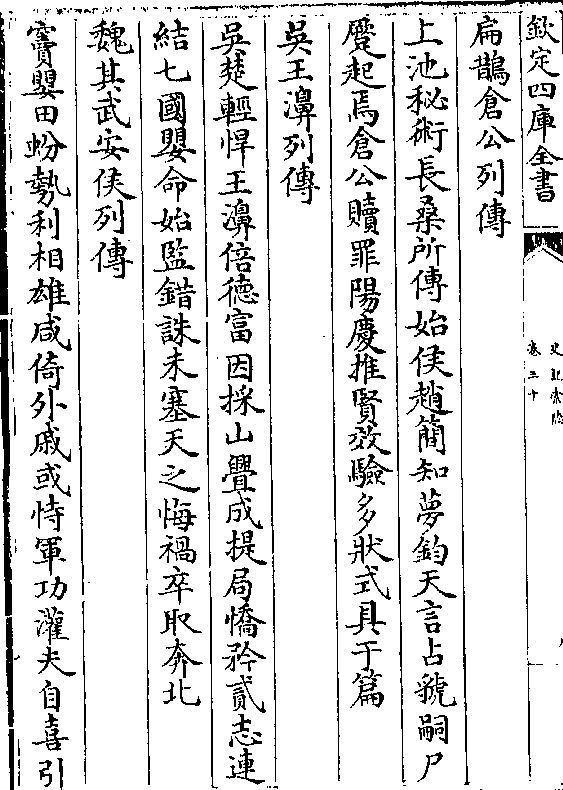 欽定四庫全書
史記索隱
卷三十
扁鵲倉公列傳
上池秘術長桑所傳始侯趙簡知夢鈞天言占虢嗣尸
蹷起焉倉公贖罪陽慶推賢效驗多狀式具于篇
吳王濞列傳
吳楚輕悍王濞倍德富因採山釁成提局憍矜貳志連
結七國嬰命始監錯誅未塞天之悔禍卒取奔北
魏其武安侯列傳
竇嬰田蚡勢利相雄咸倚外戚或恃軍功灌夫自喜引